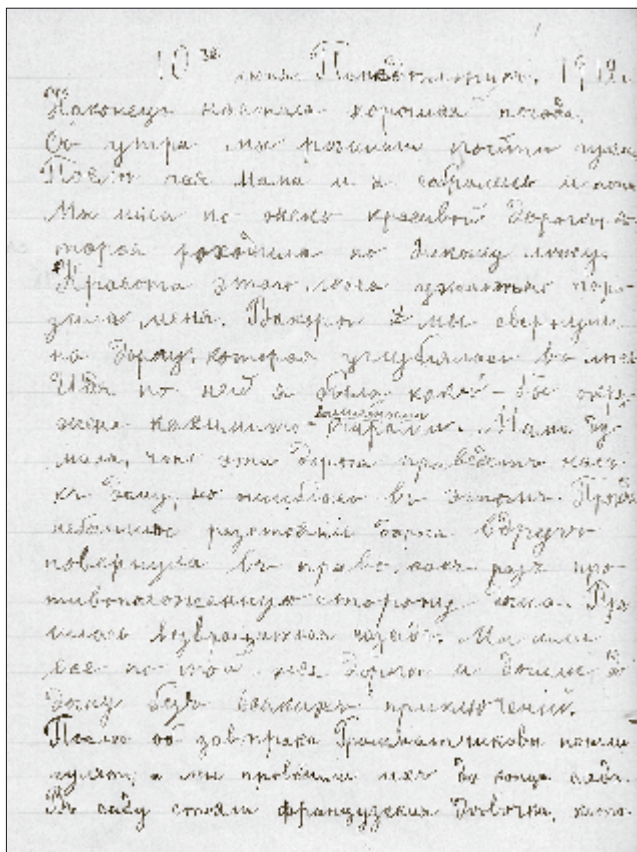 10го июня Понедельникъ. 1912г.
Наконецъ настала хорошая погода.
Съ утра мы рошли почти
После чая Мама и я собрались и
Мы шли по очень красивой дороге, ко-
торая роходила по дикому лесу.
Красота этого леса ужасно пора-
зила меня. Вскоре мы свернули
на дорогу, которая углублялась въ лесъ
Идя по ней я была какъ-бы окру-
жена какими-то волшебными чарами. Мама ду-
мала, что эта дорога приведетъ насъ
къ дому, но ошиблась въ этомъ. Пройдя
небольшое разстоянiе дорога вдругъ
повернула въ право, какъ разъ про-
тивоположенную сторону дома. При-
шлось возвращаться назадъ. Мы шли
все по той же дороге и дошли
дому безъ всякихъ приключенiй.
После завтрака пошли
гулять, а мы проводили ихъ до конца сада.
Въ саду стояли французскiя девочки, кото-